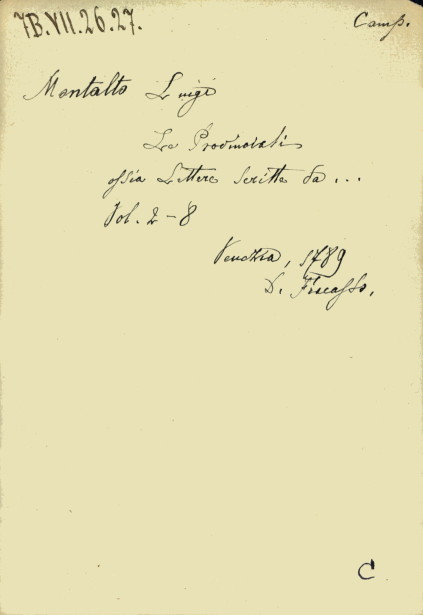 7B.VII.26.27.
Camp.
Montalto Luigi
Le Provinciali
ossia Lettere scritte da ...
Vol. 2-8
Venezia, 1789
D.
C